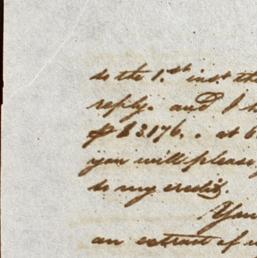 to the 1.st inst th
reply. and I
$3176.. at 6
you will please
to my credit.
You
an extract of